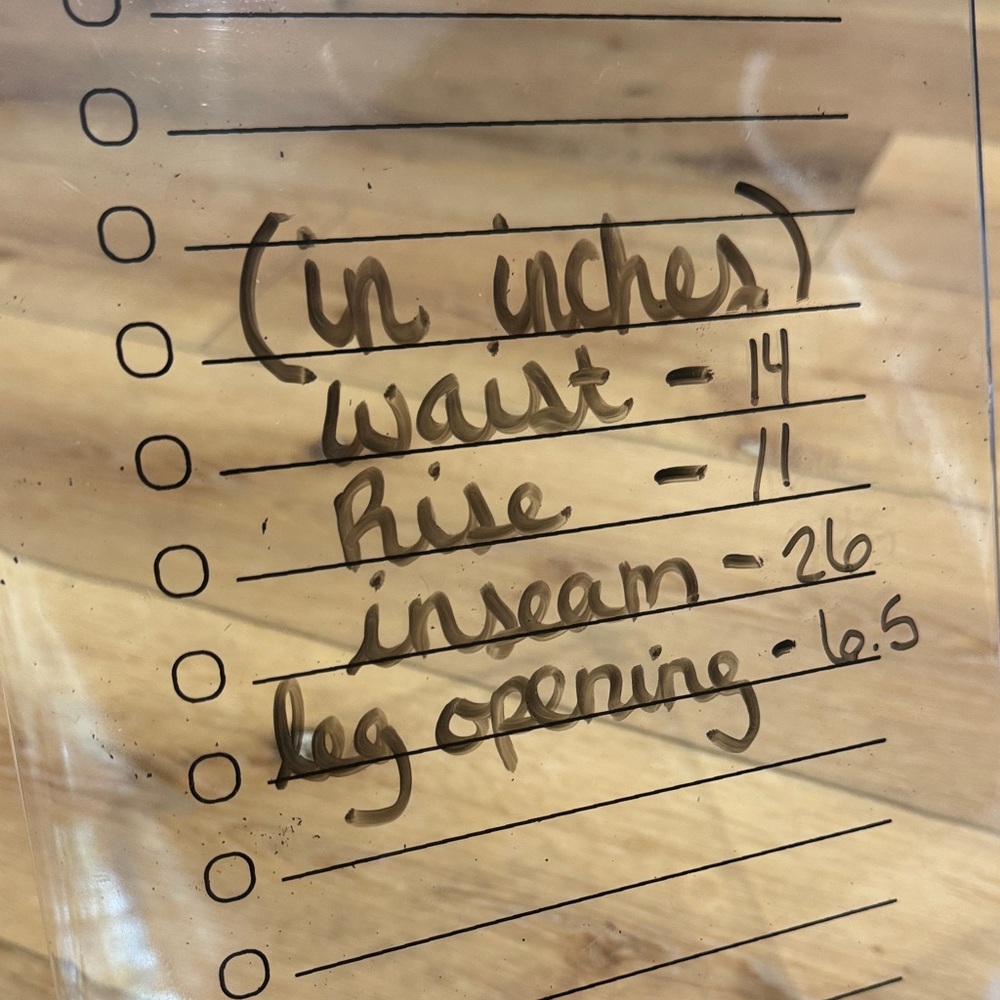 (in inches)
waist - 14
Rise - 11
inseam - 26
leg opening - 6.5